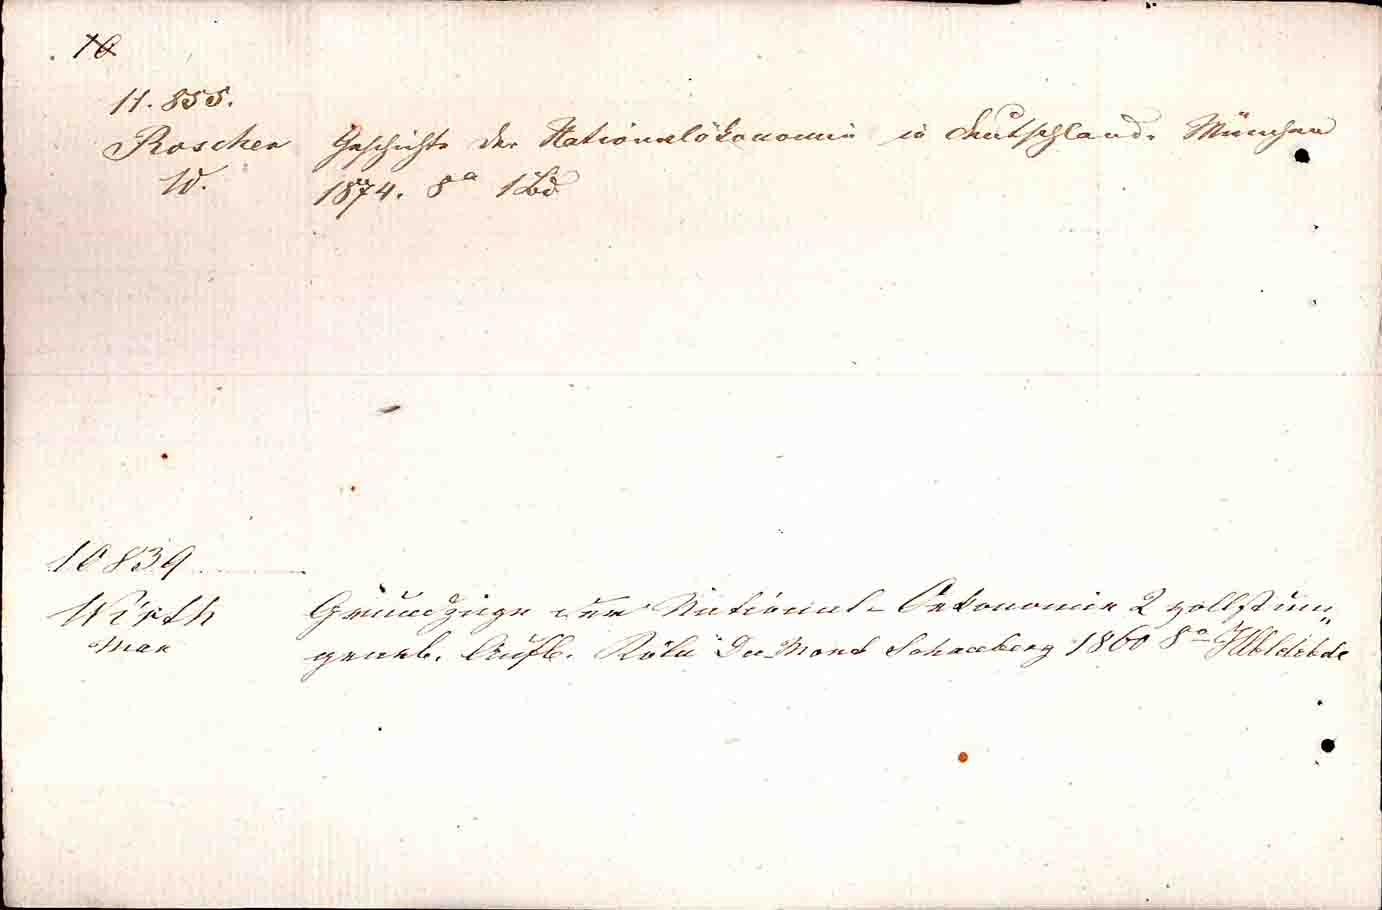 10
11.855.
Roscher Geschichte der Nationalökonomie in Deutschland. München
W. 1874. 8° 1 Bd
10839
Wirth Grundzüge der National-Oekonomie 2 vollst um„
Max gearb. Aufl. Köln Du-Mond Schauberg 1860 8°